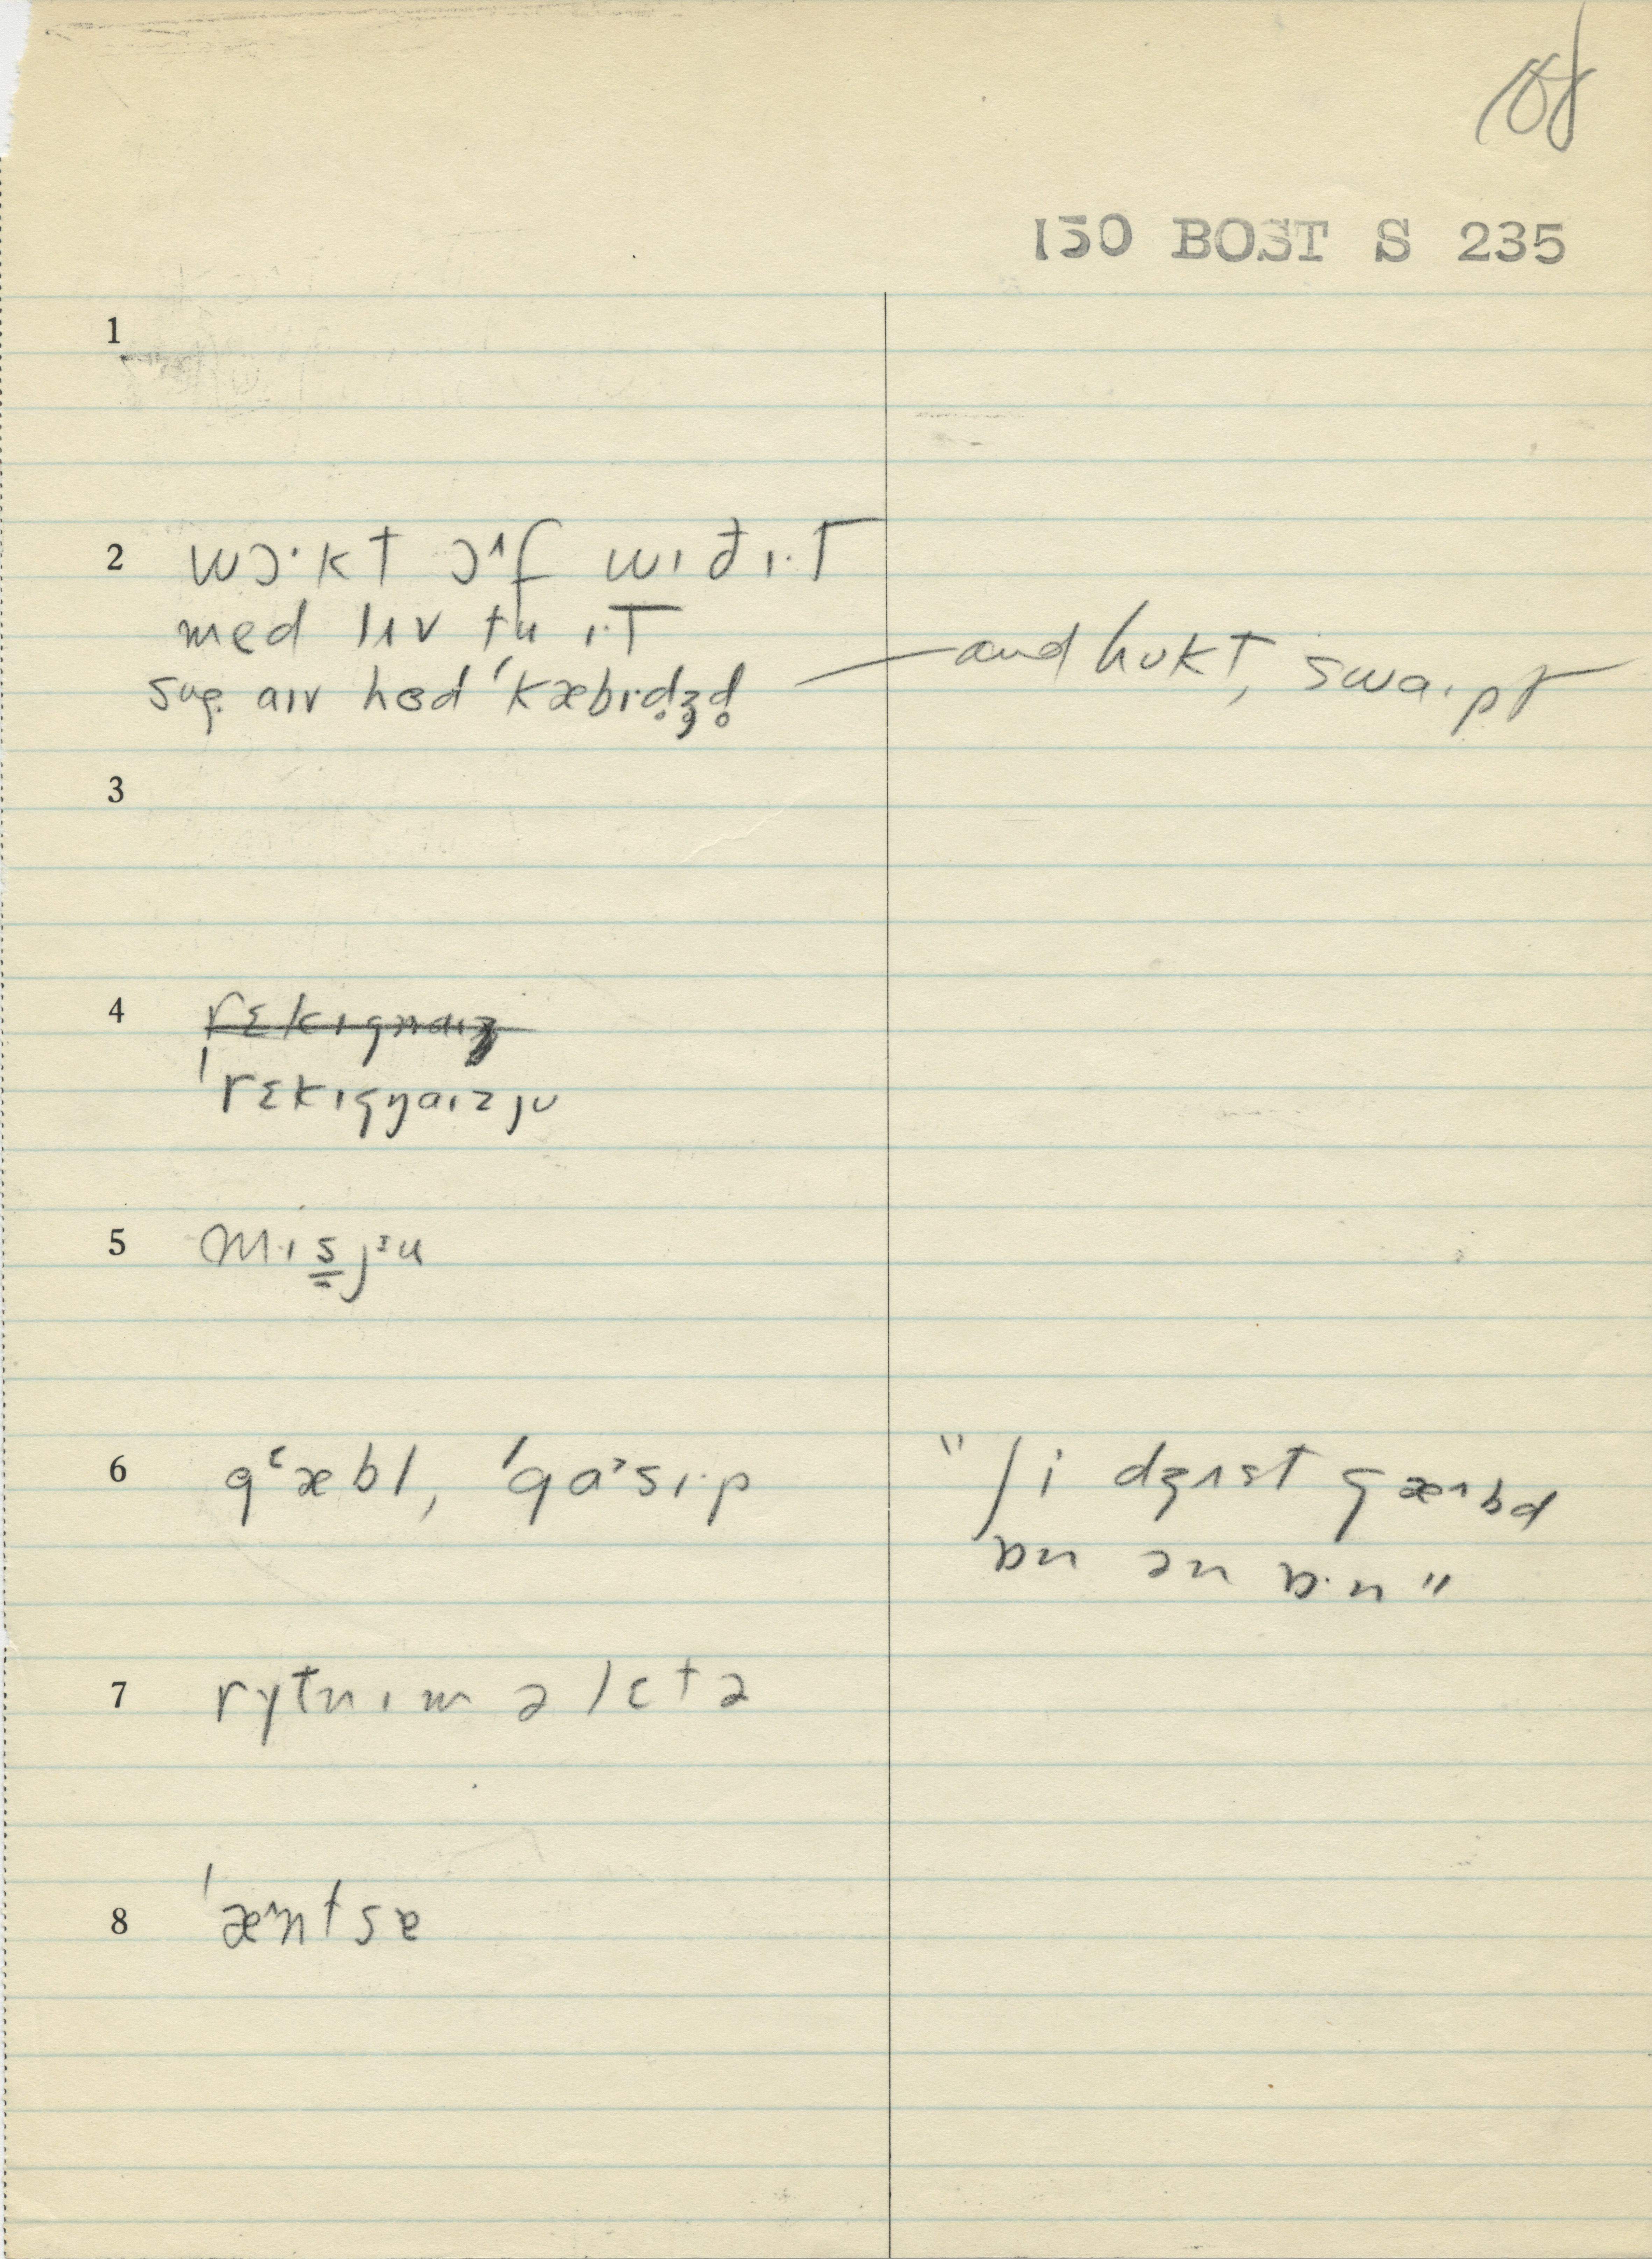 108
150 BOST S 235
1
2 wɔ·kt ɔˆf wɪđ ɪ·t
med lɪv tu ɪ·t
aɪv hɛd ˈkæbɪdʒ̥d̥ — and hukt, swaɪpt
3
4 rɛkɪgnaɪz
ˈrɛkɪgnaɪzju
5 mɪsjᶾu
6 gᵋæbl, ˈgaᵊsɪ·p "ʃi dʒʌst gæˆbd
ɒn ən ɒ·n"
7 rytnɪm ə lɛtə
8 ˈæˆntsɐ